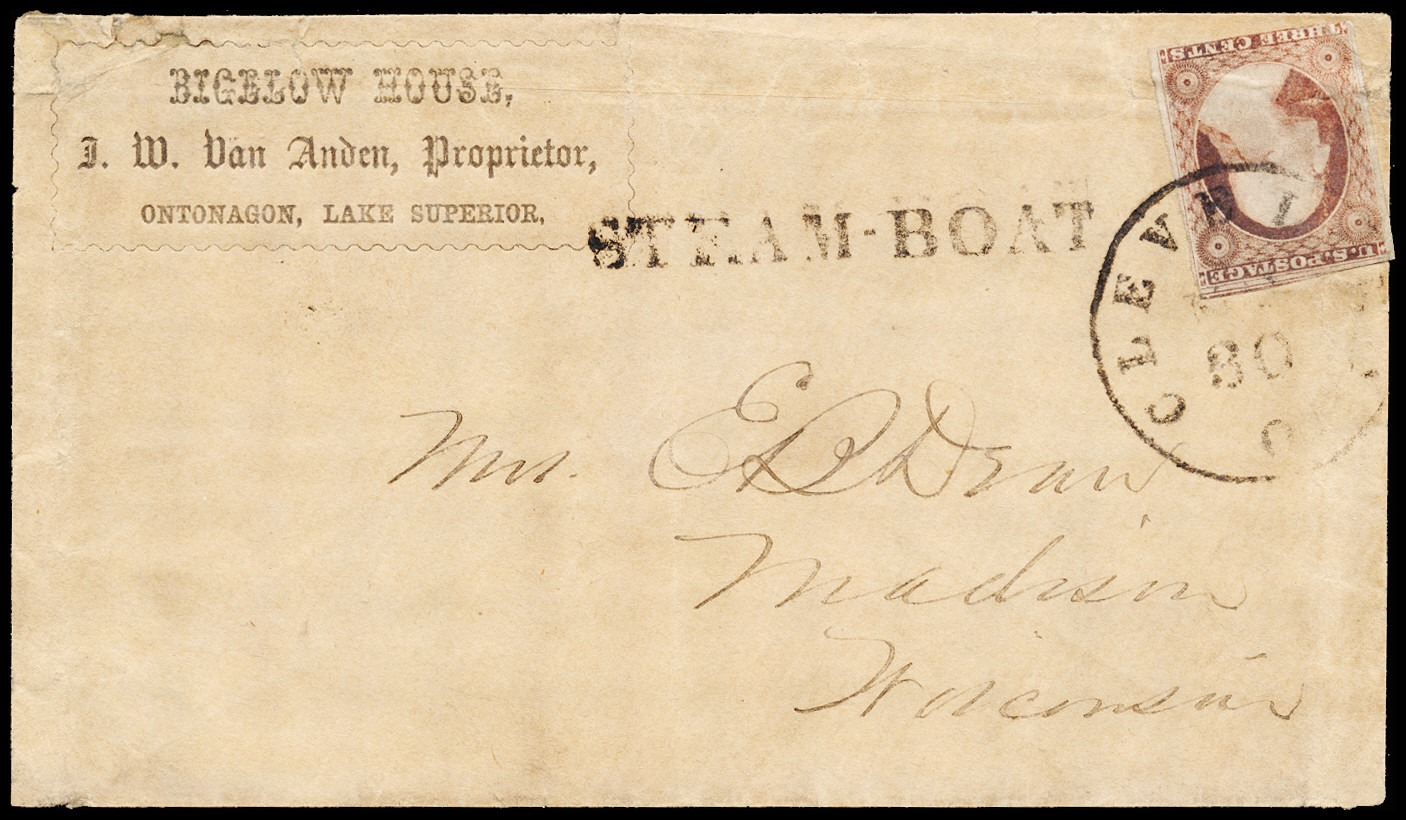 BIGELOW HOUSE,
J. W. Van Anden, Proprietor,
ONTONAGON, LAKE SUPERIOR,
STEAM-BOAT
THREE CENTS
U.S. POSTAGE
CLEVE
30
O
Mrs. E
Madison
Wisconsin